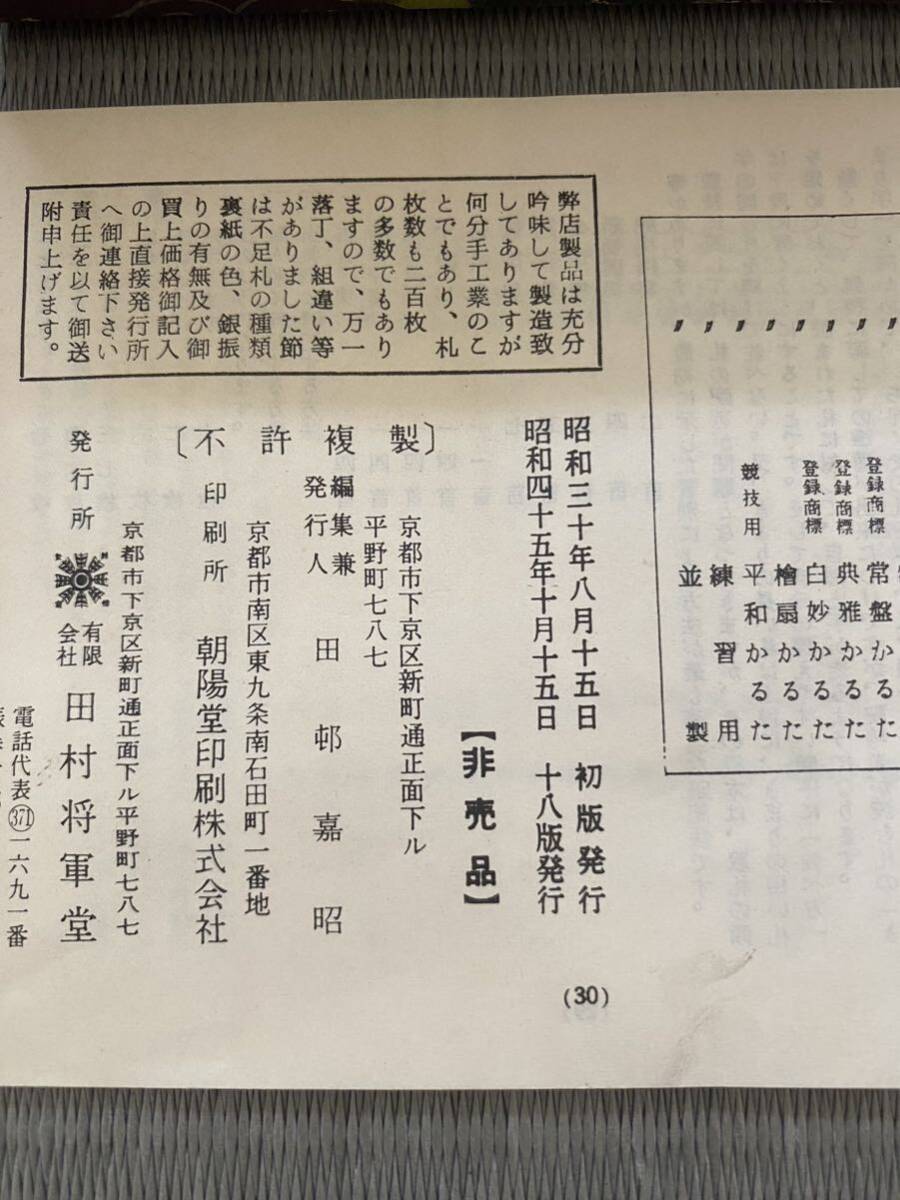 登録商標 常盤かるた
登録商標 典雅かるた
登録商標 白妙かるた
檜扇かるた
競技用 平和かるた
練習用
並製
弊店製品は充分
吟味して製造致
してありますが
何分手工業のこ
とでもあり、札
枚数も二百枚
の多数でもあり
ますので、万一
落丁、組違い等
がありました節
は不足札の種類
裏紙の色、銀振
りの有無及び御
買上価格御記入
の上直接発行所
へ御連絡下さい
責任を以て御送
附申上げます。
昭和三十年八月十五日 初版発行
昭和四十五年十月十五日 十八版発行
【非売品】
〔不許複製〕
京都市下京区新町通正面下ル
平野町七八七
編集兼
発行人 田邨嘉昭
京都市南区東九条南石田町一番地
印刷所 朝陽堂印刷株式会社
京都市下京区新町通正面下ル平野町七八七
発行所 有限会社 田村将軍堂
電話代表(371)一六九一番
(30)